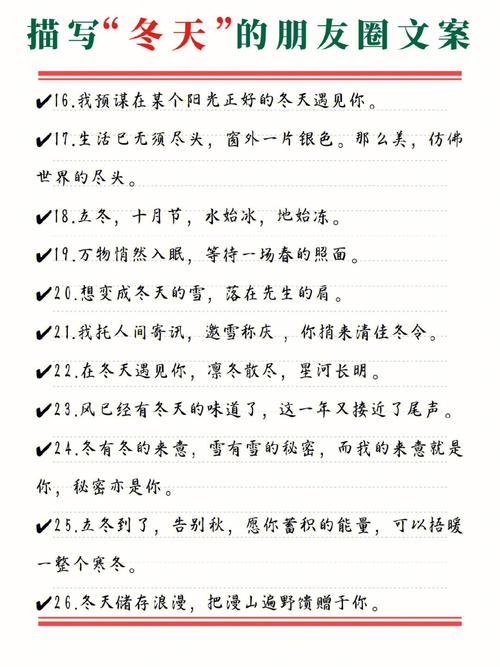 描写“冬天”的朋友圈文案
✔16.我预谋在某个阳光正好的冬天遇见你。
✔17.生活已无须尽头，窗外一片银色。那么美，仿佛
世界的尽头。
✔18.立冬，十月节，水始冰，地始冻。
✔19.万物悄然入眠，等待一场春的照面。
✔20.想变成冬天的雪，落在先生的肩。
✔21.我托人间寄讯，邀雪称庆 ，你捎来清佳冬令。
✔22.在冬天遇见你，凛冬散尽，星河长明。
✔23.风已经有冬天的味道了，这一年又接近了尾声。
✔24.冬有冬的来意，雪有雪的秘密，而我的来意就是
你，秘密亦是你。
✔25.立冬到了，告别秋，愿你蓄积的能量，可以捂暖
一整个寒冬。
✔26.冬天储存浪漫，把漫山遍野馈赠于你。